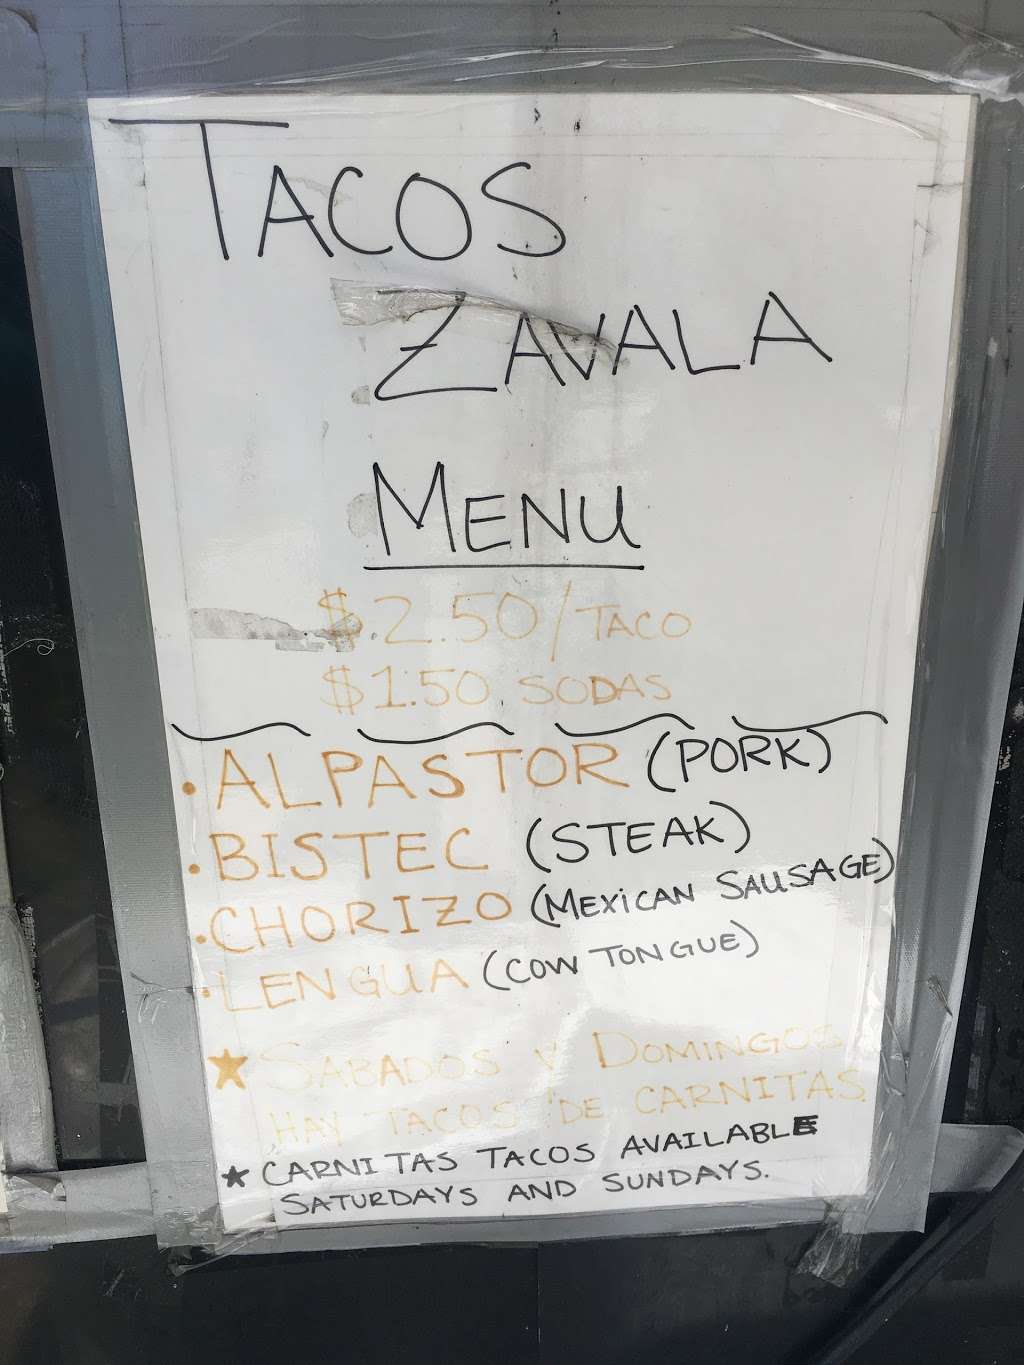 TACOS
ZAVALA
MENU
$2.50/TACO
$1.50 SODAS
• ALPASTOR (PORK)
• BISTEC (STEAK)
• CHORIZO (MEXICAN SAUSAGE)
• LENGUA (COW TONGUE)
★ SABADOS Y DOMINGOS
HAY TACOS DE CARNITAS.
★ CARNITAS TACOS AVAILABLE
SATURDAYS AND SUNDAYS.